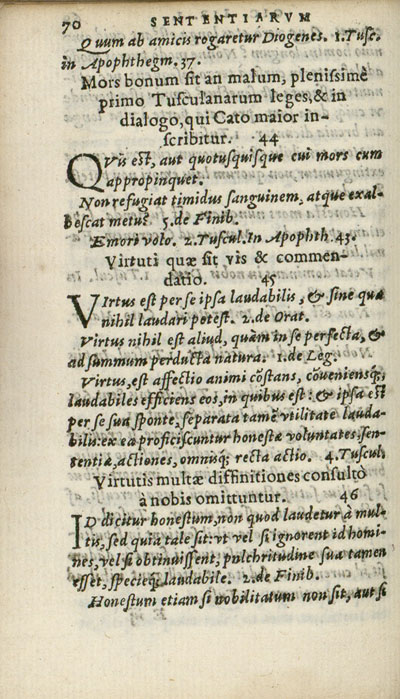 70 SENTENTIARVM
Quum ab amicis rogaretur Diogenes. 1. Tusc.
in Apophthegm. 37.
Mors bonum sit an malum, plenissimè
primo Tusculanarum leges, & in
dialogo, qui Cato maior in-
scribitur. 44
QVis est, aut quotusquisque cui mors cum
appropinquet.
Non refugiat timidus sanguinem, atque exal-
bescat metus? 5. de Finib.
Emori volo. 2. Tuscul. In Apophth. 43.
Virtuti quæ sit vis & commen-
datio. 45
VIrtus est per se ipsa laudabilis, & sine qua
nihil laudari potest. 2. de Orat.
Virtus nihil est aliud, quàm in se perfecta, &
ad summum perducta natura. 1. de Leg.
Virtus, est affectio animi cõstans, cõueniensq;,
laudabiles efficiens eos, in quibus est: & ipsa est
per se sua sponte, separata tamẽ vtilitate lauda-
bilis: ex ea proficiscuntur honestæ voluntates, sen-
tentiæ, actiones, omnisq; recta actio. 4. Tuscul.
Virtutis multæ diffinitiones consultò
à nobis omittuntur. 46
ID dicitur honestum, non quod laudetur à mul-
tis, sed quia tale sit: vt vel si ignorent id homi-
nes, vel si obtinuissent, pulchritudine sua tamen
esset, specieq; laudabile. 2. de Finib.
Honestum etiam si nobilitatum non sit, aut si